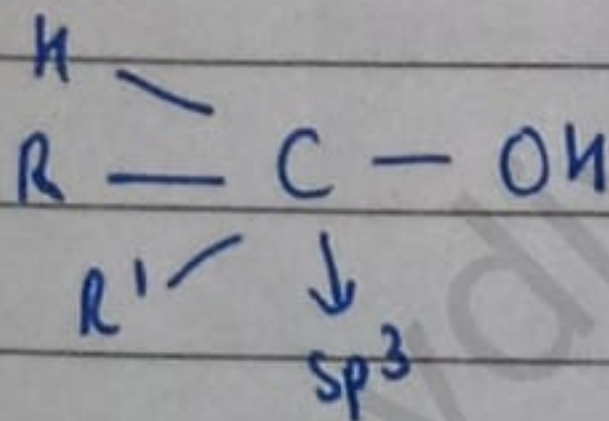 H
R — C — OH
R'
sp³